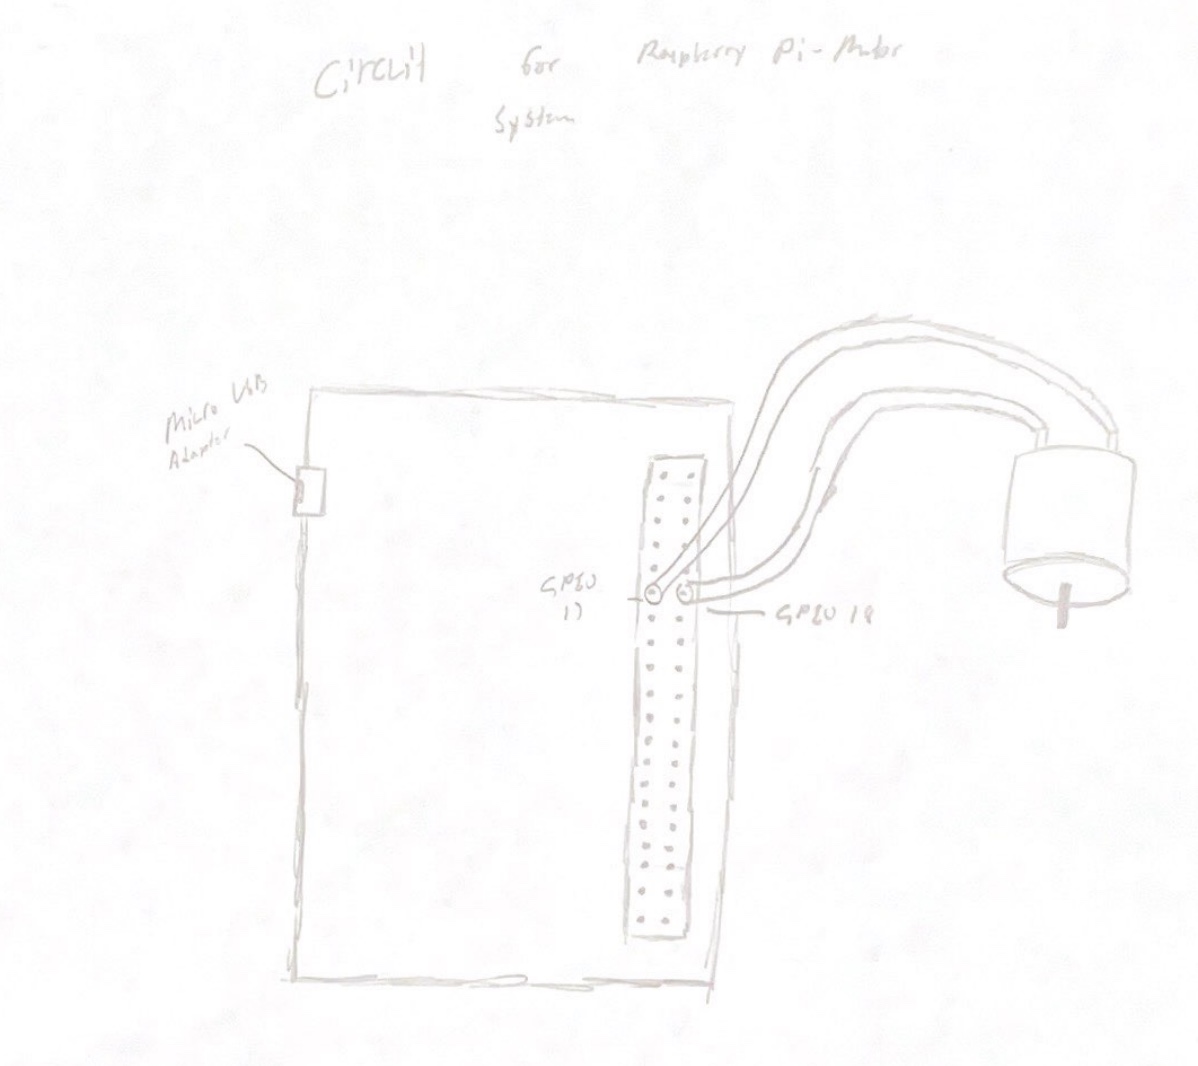 Circuit for Raspberry Pi-Motor
System
Micro USB
Adapter
GPIO
17
GPIO 18